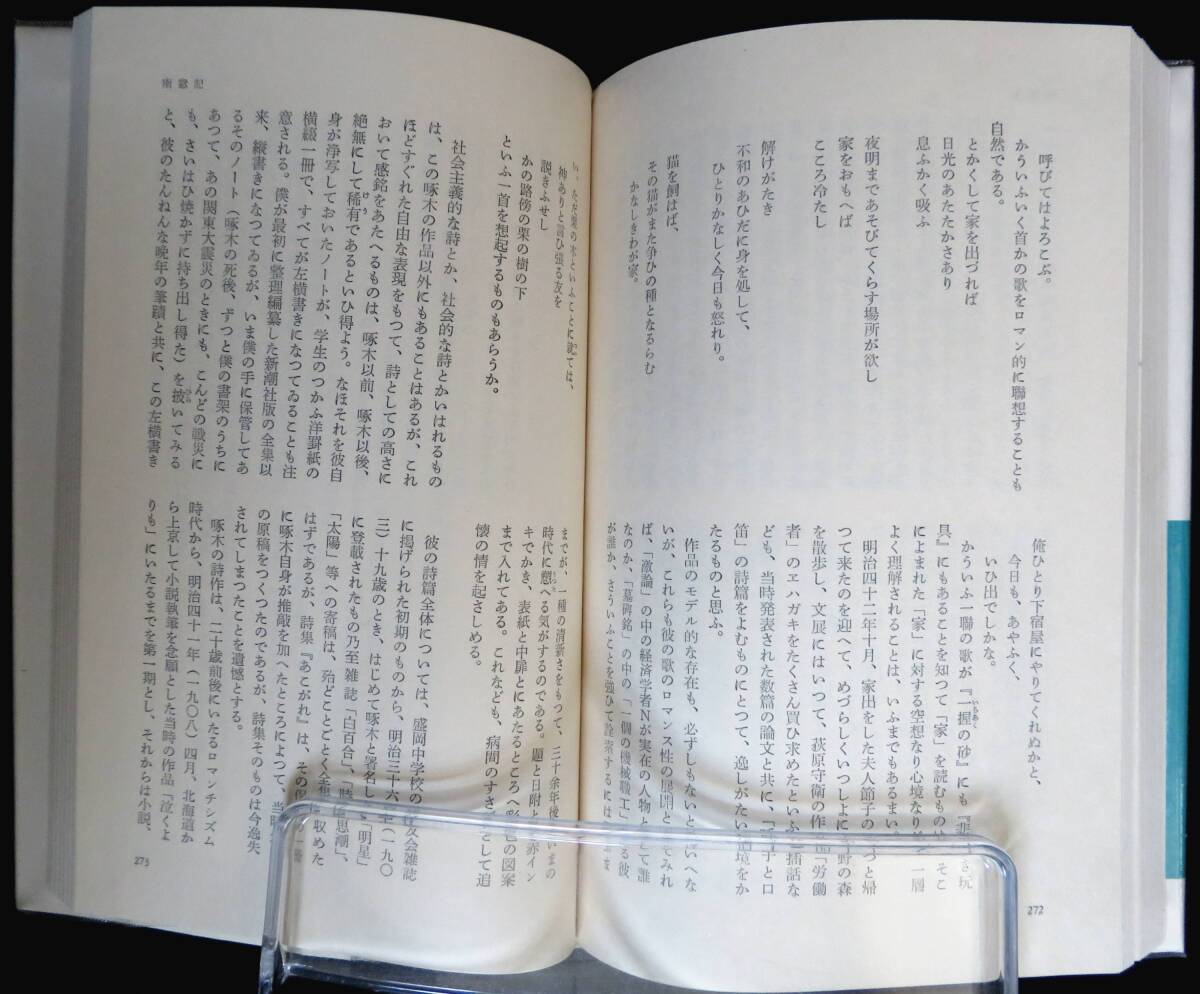 呼びてはよろこぶ。
かういふいく首かの歌をロマン的に聯想することも
自然である。
とかくして家を出づれば
日光のあたたかさあり
息ふかく吸ふ
夜明まであそびてくらす場所が欲し
家をおもへば
こころ冷たし
解けがたき
不和のあひだに身を処して、
ひとりかなしく今日も怒れり。
猫を飼はば、
その猫がまた争ひの種となるらむ
かなしきわが家。
俺ひとり下宿屋にやりてくれぬかと、
今日も、あやふく、
いひ出でしかな。
かういふ一聯の歌が『一握の砂』にも『悲
き玩
具』にもあることを知つて「家」を読むもの
そこ
によまれた「家」に対する空想なり心境なり
一層
よく理解されることは、いふまでもあるまい
明治四十二年十月、家出をした夫人節子の
つと帰
つて来たのを迎へて、めづらしくいつしよに
野の森
を散歩し、文展にはいつて、荻原守衛の作品「労働
者」のヱハガキをたくさん買ひ求めたといふ
挿話な
ども、当時発表された数篇の論文と共に、
子と口
笛」の詩篇をよむものにとつて、逸しがたい
境をか
たるものと思ふ。
作品のモデル的な存在も、必ずしもないと
いへな
いが、これらも彼の歌のロマンス性の展開と
みれ
ば、「激論」の中の経済学者Nが実在の人物と
て誰
なのか、「墓碑銘」の中の「一個の機械職工」
る彼
が誰か、さういふことを強ひて詮索するには
272
雨窓記
い。ただ栗の木といふことに就ては、
神ありと言ひ張る友を
説きふせし
かの路傍の栗の樹の下
といふ一首を想起するものもあらうか。
社会主義的な詩とか、社会的な詩とかいはれるもの
は、この啄木の作品以外にもあることはあるが、これ
ほどすぐれた自由な表現をもつて、詩としての高さに
おいて感銘をあたへるものは、啄木以前、啄木以後、
絶無にして稀有であるといひ得よう。なほそれを彼自
身が浄写しておいたノートが、学生のつかふ洋罫紙の
横綴一冊で、すべてが左横書きになつてゐることも注
意される。僕が最初に整理編纂した新潮社版の全集以
来、縦書きになつてゐるが、いま僕の手に保管してあ
るそのノート（啄木の死後、ずつと僕の書架のうちに
あつて、あの関東大震災のときにも、こんどの戦災に
も、さいはひ焼かずに持ち出し得た）を披いてみる
と、彼のたんねんな晩年の筆蹟と共に、この左横書き
までが、一種の清新さをもつて、三十余年後
いまの
時代に愬へる気がするのである。題と日附と
赤イン
キでかき、表紙と中扉とにあたるところへ
色の図案
まで入れてある。これなども、病間のすさ
として追
懐の情を起さしめる。
彼の詩篇全体については、盛岡中学校の
友会雑誌
に掲げられた初期のものから、明治三十六
（一九〇
三）十九歳のとき、はじめて啄木と署名し
「明星」
に登載されたもの乃至雑誌「白百合」、「時代思潮」、
「太陽」等への寄稿は、殆どことごとく全集
収めた
はずであるが、詩集『あこがれ』は、その
一番
に啄木自身が推敲を加へたところによつて、当時
の原稿をつくつたのであるが、詩集そのものは今逸失
されてしまつたことを遺憾とする。
啄木の詩作は、二十歳前後にいたるロマンチシズム
時代から、明治四十一年（一九〇八）四月、北海道か
ら上京して小説執筆を念願とした当時の作品「泣くよ
りも」にいたるまでを第一期とし、それからは小説、
273